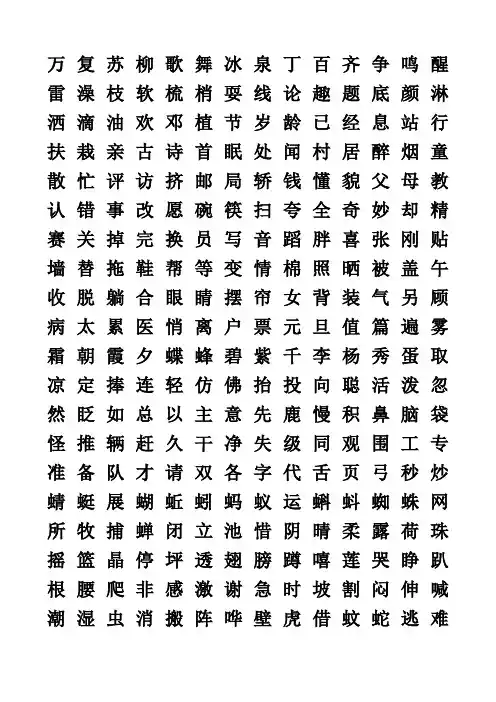 万 复 苏 柳 歌 舞 冰 泉 丁 百 齐 争 鸣 醒
雷 澡 枝 软 梳 梢 耍 线 论 趣 题 底 颜 淋
洒 滴 油 欢 邓 植 节 岁 龄 已 经 息 站 行
扶 栽 亲 古 诗 首 眠 处 闻 村 居 醉 烟 童
散 忙 评 访 挤 邮 局 轿 钱 懂 貌 父 母 教
认 错 事 改 愿 碗 筷 扫 夸 全 奇 妙 却 精
赛 关 掉 完 换 员 写 音 蹈 胖 喜 张 刚 贴
墙 替 拖 鞋 帮 等 变 情 棉 照 晒 被 盖 午
收 脱 躺 合 眼 睛 摆 帘 女 背 装 气 另 顾
病 太 累 医 悄 离 户 票 元 旦 值 篇 遍 雾
霜 朝 霞 夕 蝶 蜂 碧 紫 千 李 杨 秀 蛋 取
凉 定 捧 连 轻 仿 佛 抬 投 向 聪 活 泼 忽
然 眨 如 总 以 主 意 先 鹿 慢 积 鼻 脑 袋
怪 推 辆 赶 久 干 净 失 级 同 观 围 工 专
准 备 队 才 请 双 各 字 代 舌 页 弓 秒 炒
蜻 蜓 展 蝴 蚯 蚓 蚂 蚁 运 蝌 蚪 蜘 蛛 网
所 牧 捕 蝉 闭 立 池 惜 阴 晴 柔 露 荷 珠
摇 篮 晶 停 坪 透 翅 膀 蹲 嘻 莲 哭 睁 趴
根 腰 爬 非 感 激 谢 急 时 坡 割 闷 伸 喊
潮 湿 虫 消 搬 阵 哗 壁 虎 借 蚊 蛇 逃 难